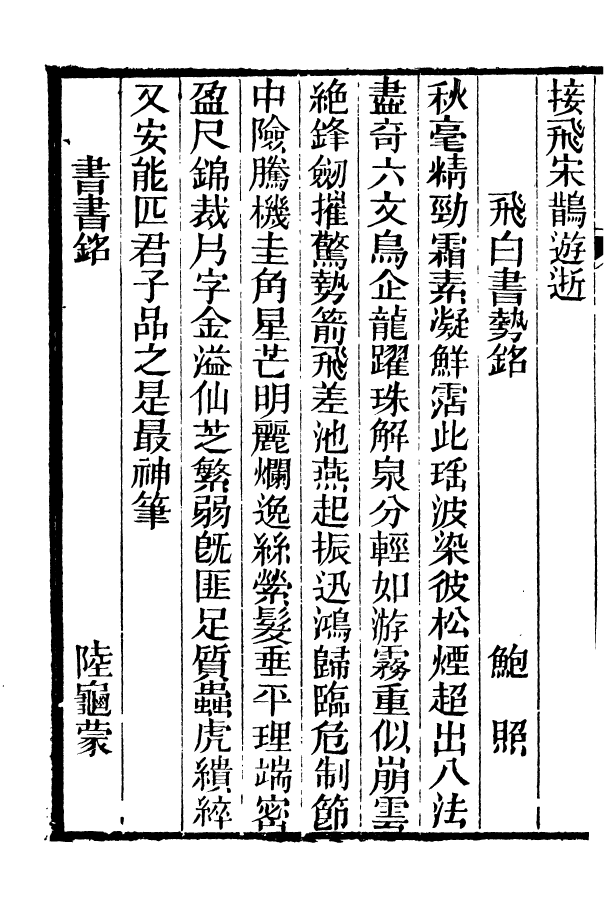 接飛宋鵲遊逝
飛白書勢銘 鮑照
秋毫精勁霜素凝鮮霑此瑤波染彼松煙超出八法
盡奇六文鳥企龍躍珠解泉分輕如游霧重似崩雲
絶鋒劒摧驚勢箭飛差池燕起振迅鴻歸臨危制節
中險騰機圭角星芒明麗爛逸絲縈髮垂平理端密
盈尺錦裁片字金溢仙芝繁弱旣匪足質蟲虎縝綷
又安能匹君子品之是最神筆
書書銘 陸龜蒙